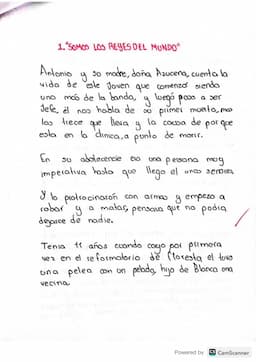 1. "SOMOS LOS REYES DEL MUNDO"
Antonio y so madre, doña Azucena, cuenta la
vida de este Joven que comenzo siendo
uno mas de la banda, y luego paso a ser
Jefe, él nos habla de so primer muerto, mas
los trece que lleva y la causa de por que
esta en la clinica, a punto de morir.
En su adolecencia es una persona muy
imperativa hasta que llego el unas
Y lo patrocinaron con armas y empezo a
robar y a matar, pensava que no podia
dejarse de nadie.
Tenia 11 años cuando cayo por primera
vez en el reformatorio de floresta el tuvo
una pelea con un pelado, hijo de Blanca una
vecina.
Powered by CS CamScanner